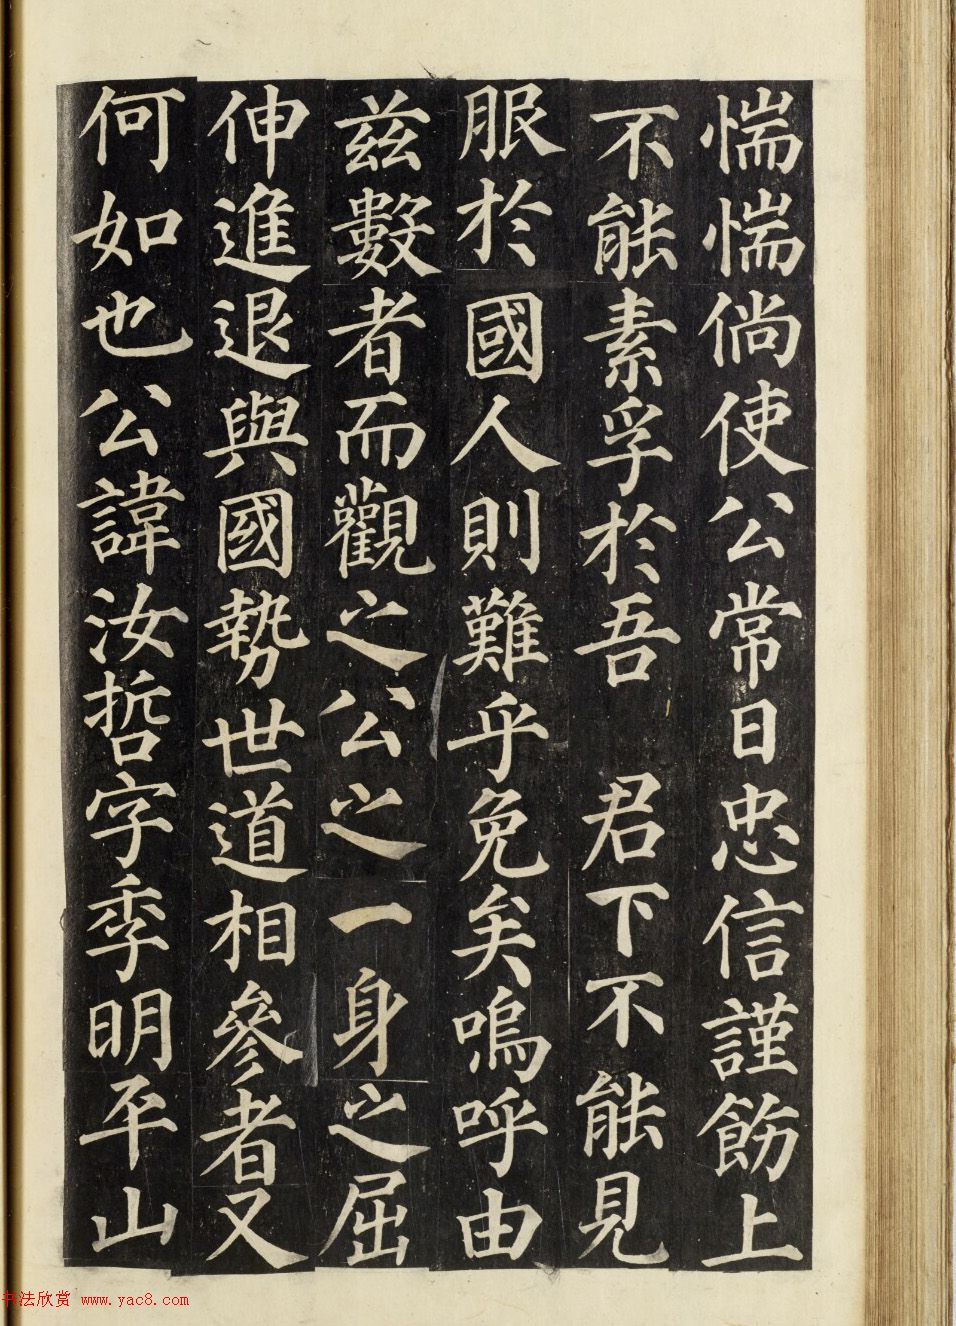 惴惴倘使公常日忠信謹飭上
不能素孚於吾　君下不能見
服於國人則難乎免矣嗚呼由
茲數者而觀之公之一身之屈
伸進退與國勢世道相參者又
何如也公諱汝哲字季明平山
书法欣赏 www.yac8.com